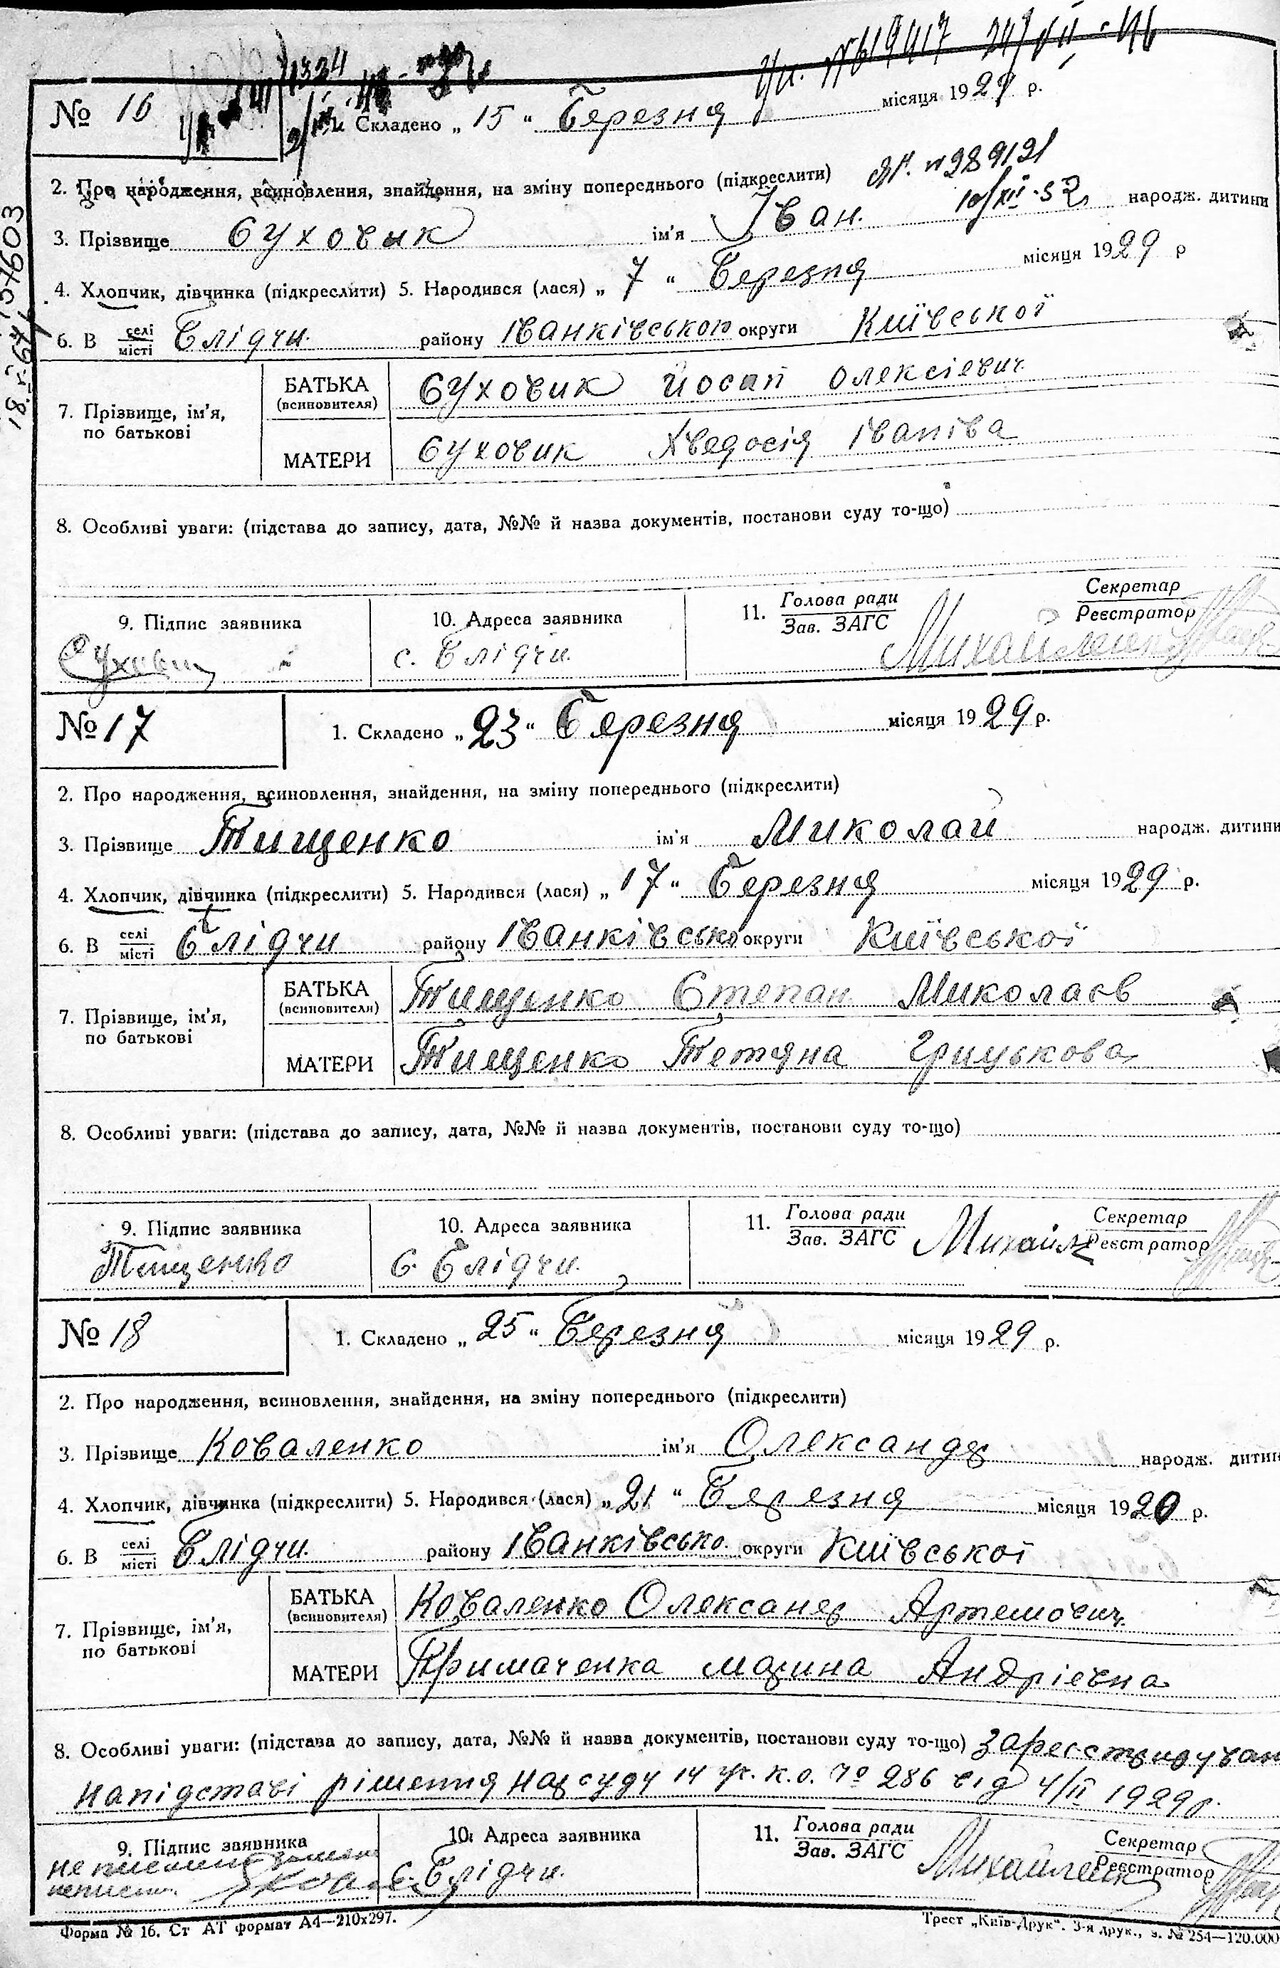 Уп. №619417 24/VII-46
1324
№ 16 1. Складено „ 15 " Березня місяця 1929 р.
2. Про народження, всиновлення, знайдення, на зміну попереднього (підкреслити) №289121
10/XII-52
3. Прізвище Суховик ім'я Іван. народж. дитини
4. Хлопчик, дівчинка (підкреслити) 5. Народився (лася) „ 7 " Березня місяця 1929 р
6. В селі/місті Блідчи. району Іванківського округи Київської
7. Прізвище, ім'я, по батькові
БАТЬКА (всиновителя) Суховик Йосип Олексієвич
МАТЕРИ Суховик Хведосія Іванівна
8. Особливі уваги: (підстава до запису, дата, №№ й назва документів, постанови суду то-що)
9. Підпис заявника 10. Адреса заявника 11. Голова ради/Зав. ЗАГС Секретар/Реєстратор
Суховик с. Блідчи. Михайленко
№ 17 1. Складено „ 23 " Березня місяця 1929 р.
2. Про народження, всиновлення, знайдення, на зміну попереднього (підкреслити)
3. Прізвище Тищенко ім'я Миколай народж. дитини
4. Хлопчик, дівчинка (підкреслити) 5. Народився (лася) „ 17 " Березня місяця 1929 р.
6. В селі/місті Блідчи району Іванківсько округи Київської
7. Прізвище, ім'я, по батькові
БАТЬКА (всиновителя) Тищенко Степан Миколаєв
МАТЕРИ Тищенко Тетяна Грицькова
8. Особливі уваги: (підстава до запису, дата, №№ й назва документів, постанови суду то-що)
9. Підпис заявника 10. Адреса заявника 11. Голова ради/Зав. ЗАГС Секретар/Реєстратор
Тищенко С. Блідчи. Михайл
№ 18 1. Складено „ 25 " Березня місяця 1929 р.
2. Про народження, всиновлення, знайдення, на зміну попереднього (підкреслити)
3. Прізвище Коваленко ім'я Олександр народж. дитини
4. Хлопчик, дівчинка (підкреслити) 5. Народився (лася) „ 21 " Березня місяця 1920 р.
6. В селі/місті Блідчи. району Іванківсько. округи Київської
7. Прізвище, ім'я, по батькові
БАТЬКА (всиновителя) Коваленко Олександр Артемович
МАТЕРИ Примаченка Марина Андрієвна
8. Особливі уваги: (підстава до запису, дата, №№ й назва документів, постанови суду то-що) Зареєстровуван
на підставі рішення нарсуду 14 уч. К.О. № 286 від 4/II 1929 р.
9. Підпис заявника 10. Адреса заявника 11. Голова ради/Зав. ЗАГС Секретар/Реєстратор
с. Блідчи. Михайленко
Форма № 16. Ст АТ формат А4—210х297. Трест „Київ-Друк". 3-я друк., з. № 254—120.000